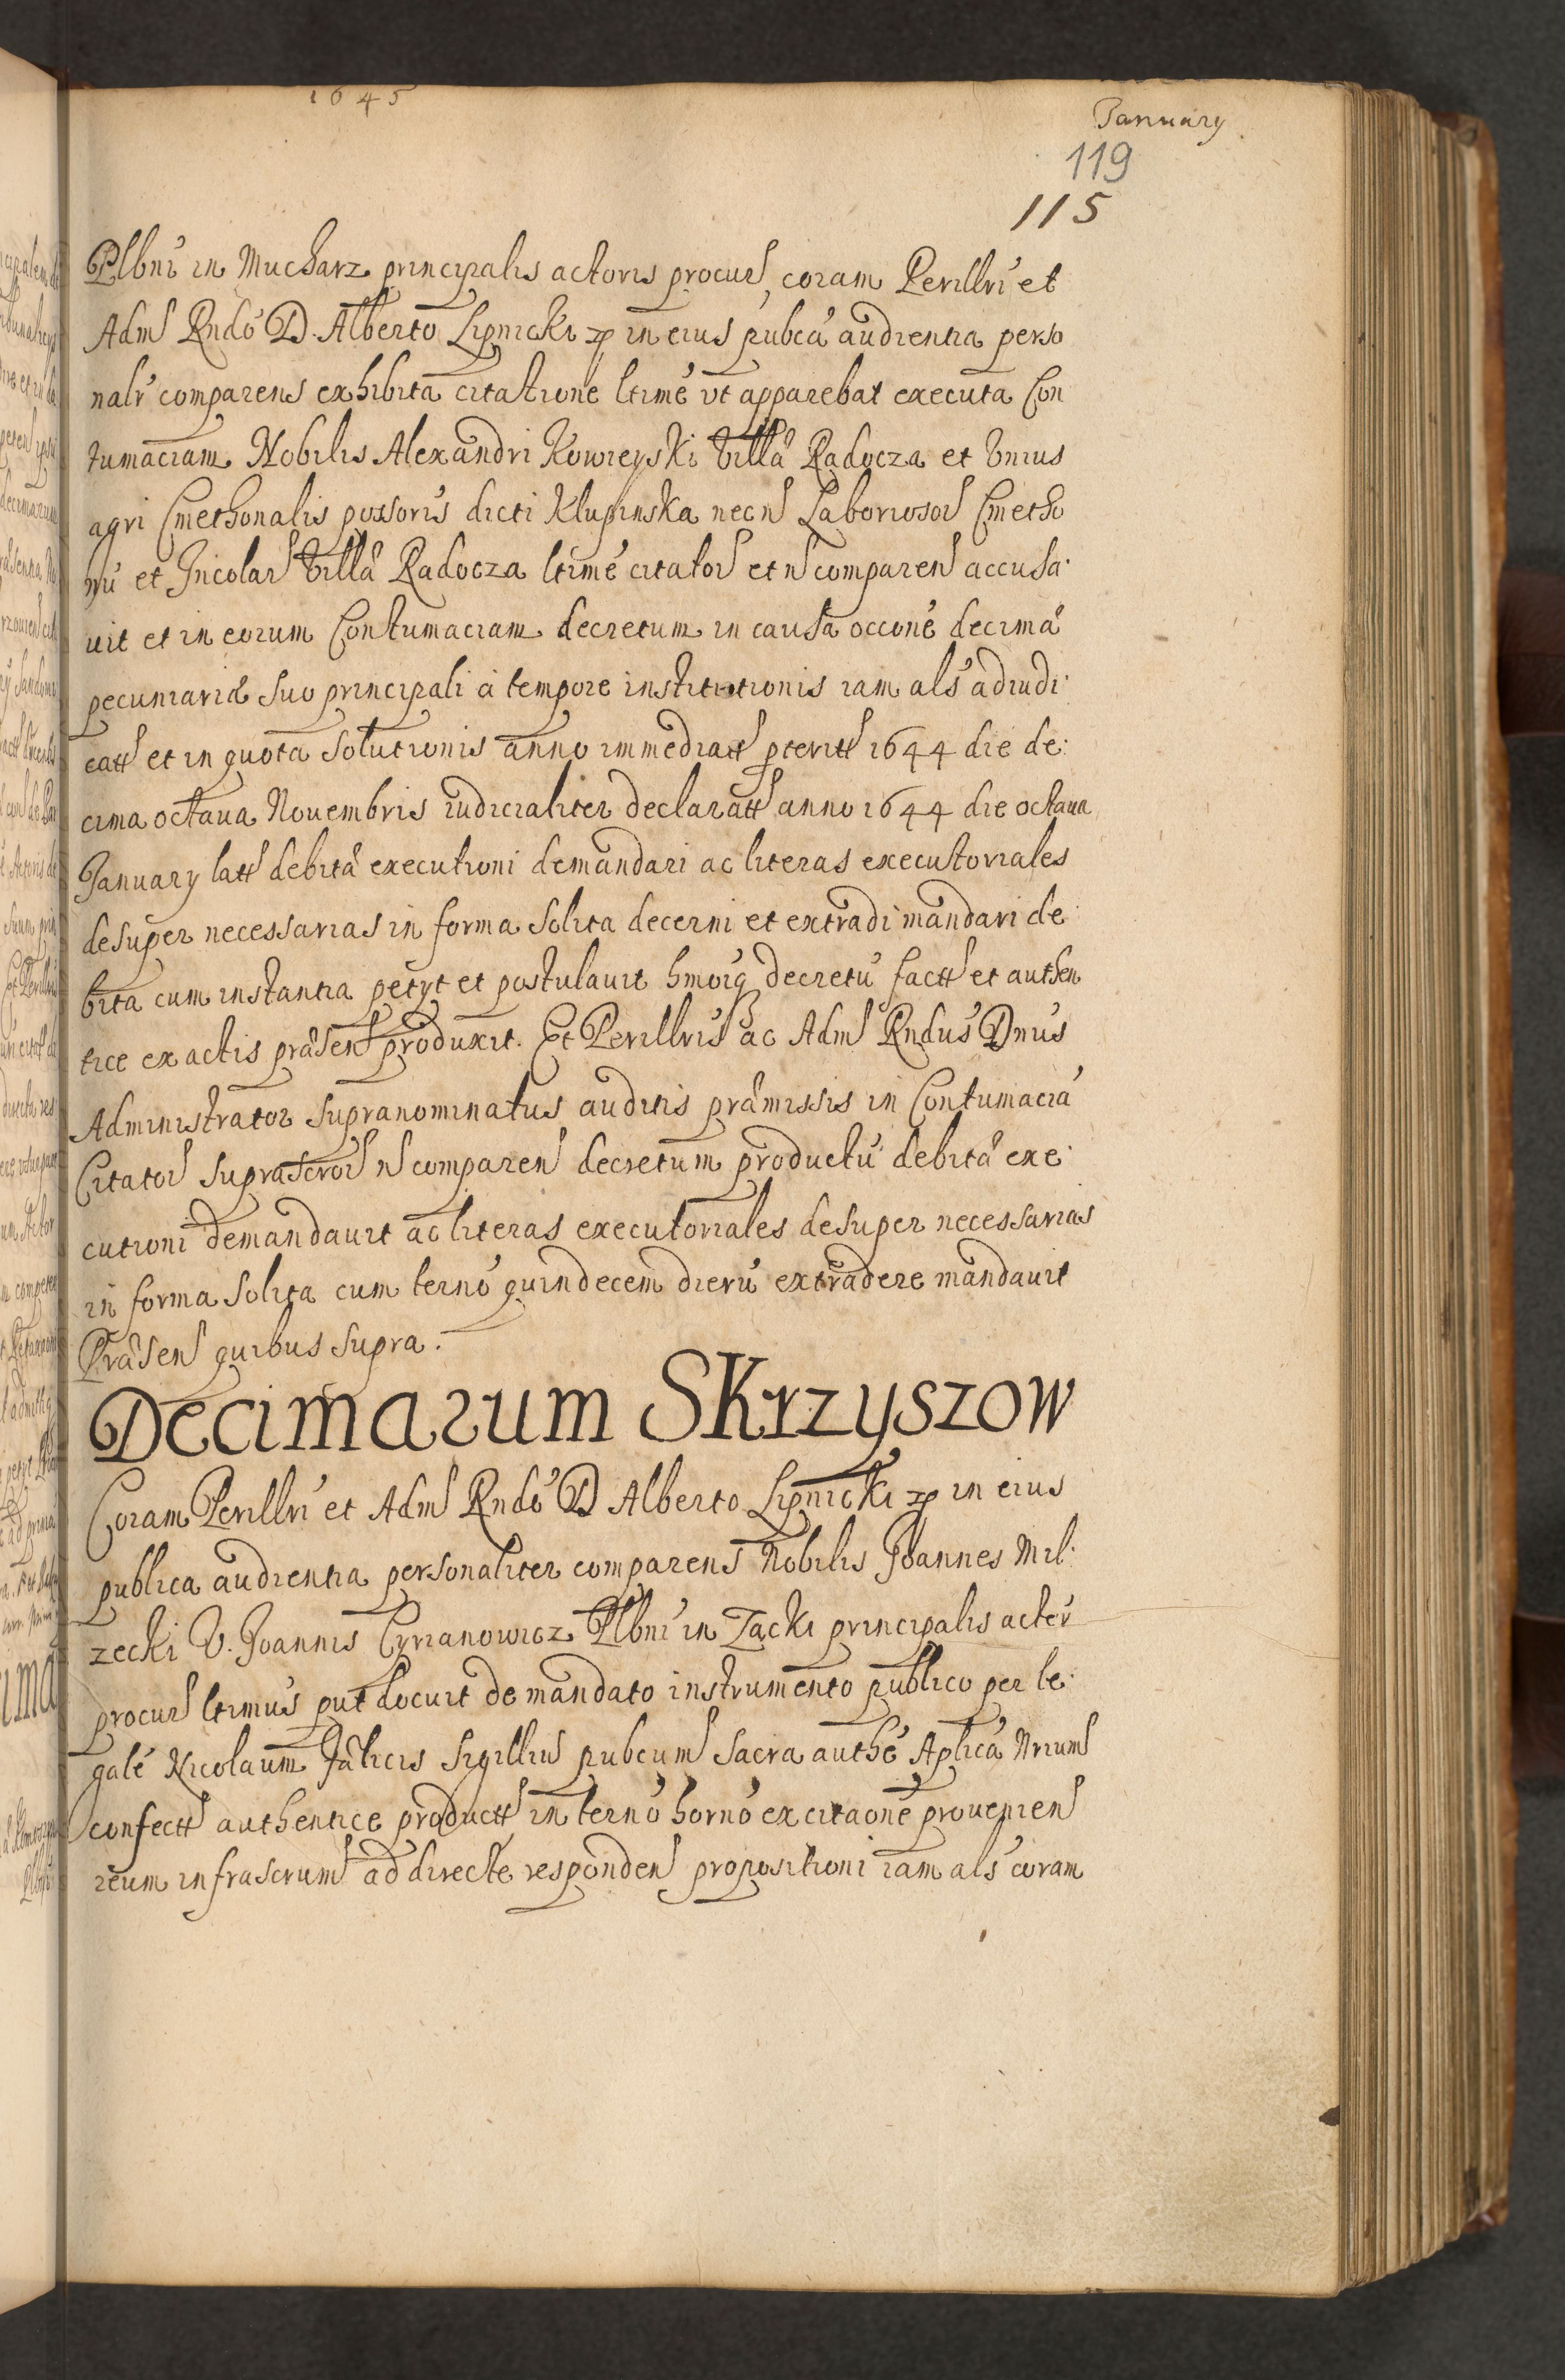 1645
January
119
115
Plbni in Mucharz principalis actoris procur coram Perillri et
Adm Rndo D. Alberto Lipnicki in eius pubca audientia perso
nalr comparens exhibita citatione ltime ut apparebat executa Con
tumaciam Nobilis Alexandri Kowieyski Villa Radocza et Vnius
agri Cmethonalis possoris dicti Klupinska necn Laboriosor Cmetho
nu et Incolar Villa Radocza ltime citator et n comparen accusa
uit et in eorum Contumaciam decretum in causa occone decima
pecuniaria suo principali a tempore institutionis iam als adiudi
catt et in quota solutionis anno immediatt pteritt 1644 die de
cima octaua Nouembris iudicialiter declaratt anno 1644 die octaua
January latt debita executioni demandari ac literas executoriales
desuper necessarias in forma solita decerni et extradi mandari de
bita cum instantia petyt et postulauit hmoiq decretu factt et authen
tice ex actis præsen produxit. Et Perillris ac Adm Rndus Dnus
Administrator supranominatus auditis præmissis in Contumacia
Citator suprascror n comparen decretum productu debita exe
cutioni demandauit ac literas executoriales desuper necessarias
in forma solita cum terno quindecem dieru extradere mandauit
Præsen quibus supra.
Decimarum Skrzyszow
Coram Perillri et Adm Rndo D Alberto Lipnicki in eius
publica audientia personaliter comparens Nobilis Joannes Mil
zecki V. Joannis Cyrianowicz Plbni in Zacki principalis actor
procur ltimus put docuit de mandato instrumento publico per le
gale Nicolaum Falicis Sigillin pubcum sacra authe Aplica Nrium
confectt authentice productt in terno horno ex citaone prouenien
reum infrascrum ad directe responden propositioni iam als coram